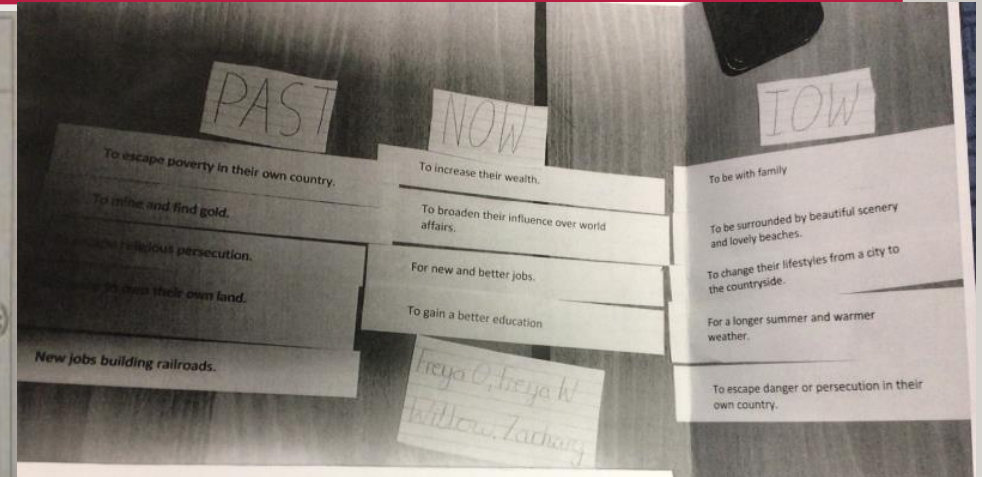 PAST
To escape poverty in their own country.
To mine and find gold.
religious persecution.
to own their own land.
New jobs building railroads.
NOW
To increase their wealth.
To broaden their influence over world
affairs.
For new and better jobs.
To gain a better education
Freya O, Freya W
Willow, Zachary
IOW
To be with family
To be surrounded by beautiful scenery
and lovely beaches.
To change their lifestyles from a city to
the countryside.
For a longer summer and warmer
weather.
To escape danger or persecution in their
own country.